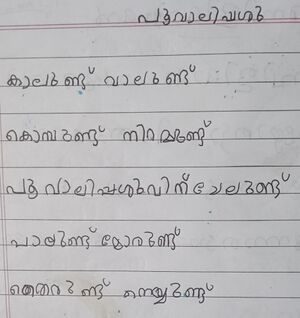 പൂവാലിപ്പശു
കാലുണ്ട് വാലുണ്ട്
കൊമ്പുണ്ട് നിറമുണ്ട്
പൂവാലിപ്പശുവിന് ചേലുണ്ട്
പാലുണ്ട് മോരുണ്ട്
തൈരുണ്ട് നെയ്യുണ്ട്